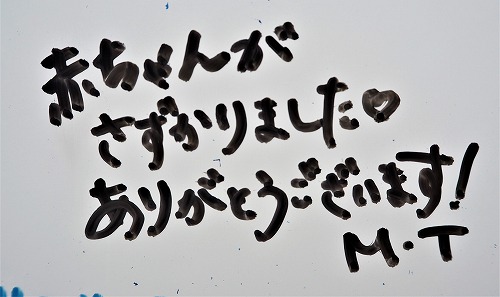 赤ちゃんが
さずかりました♡
ありがとうございます!
M・T